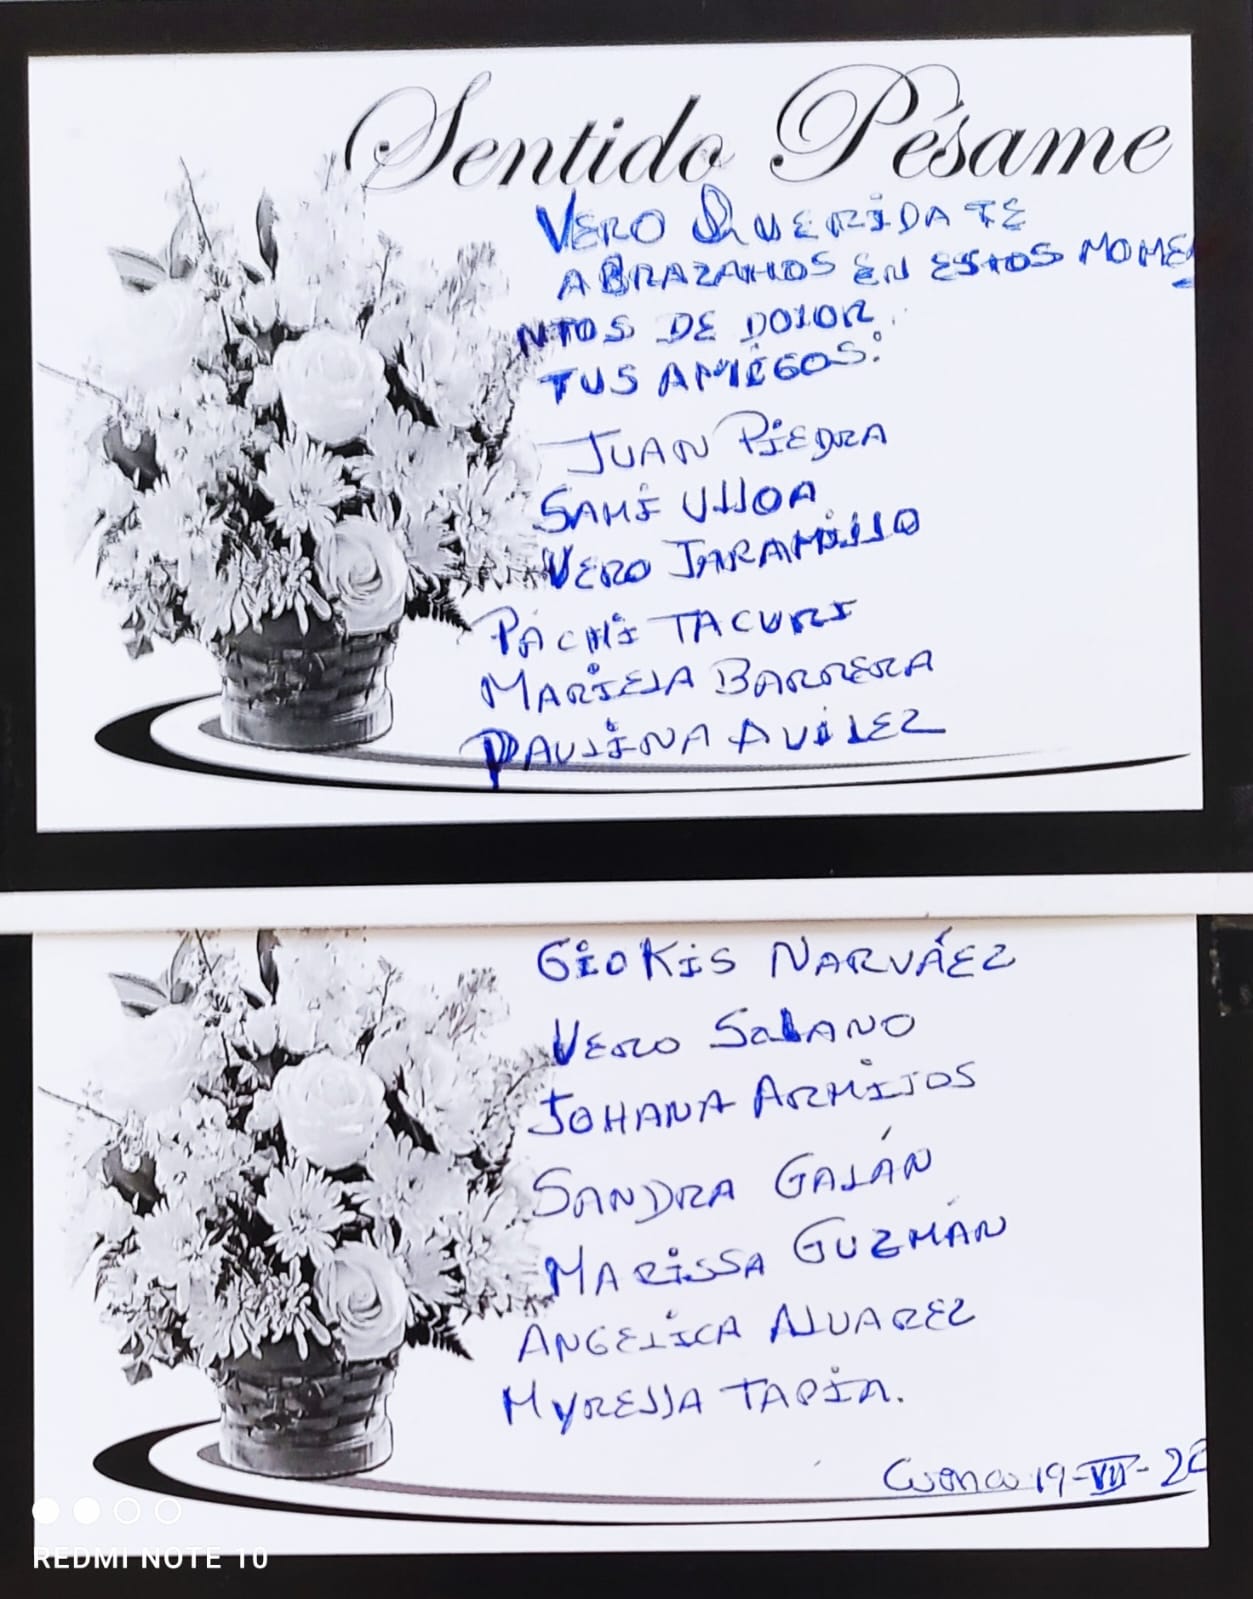 Sentido Pésame
VERO QUERIDA TE
ABRAZAMOS EN ESTOS MOME
NTOS DE DOLOR
TUS AMIGOS:
JUAN PIEDRA
SAMI ULLOA
VERO JARAMILLO
PACHI TACURI
MARIELA BARRERA
PAULINA AVILEZ
GIOKIS NARVÁEZ
VERO SOLANO
JOHANA ARMIJOS
SANDRA GALÁN
MARISSA GUZMÁN
ANGELICA ALVAREZ
MYRELLA TAPIA.
Cuenca 19-VII-20
REDMI NOTE 10